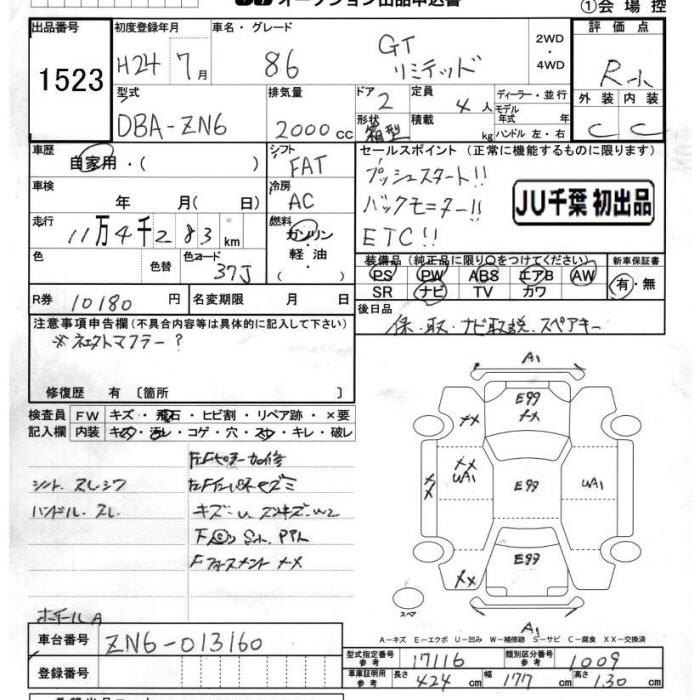 オークション出品申込書
①会場控
出品番号
1523
初度登録年月
H24 7月
車名・グレード
86
GT
リミテッド
2WD
・
4WD
評価点
R-小
外装 内装
C C
型式
DBA-ZN6
排気量
2000cc
ドア
2
定員
4人
ディーラー・並行
モデル
年式 年
形状
箱型
積載
kg
ハンドル 左・右
車歴
自家用・( )
シフト
FAT
車検
年 月( 日)
冷房
AC
走行
11万4千283km
燃料
ガソリン
軽油
( )
色
色替
色コード
37J
R券 10180円
名変期限 月 日
セールスポイント(正常に機能するものに限ります)
プッシュスタート!!
バックモニター!!
ETC!!
JU千葉 初出品
装備品(純正品に限り○をつけてください)
PS PW ABS エアB AW
SR ナビ TV カワ
新車保証書
有・無
後日品
保・取・ナビ取説、スペアキー
注意事項申告欄(不具合内容等は具体的に記入して下さい)
修復歴 有〔箇所 〕
検査員
記入欄
FW キズ・飛石・ヒビ割・リペア跡・×要
内装 キズ・汚レ・コゲ・穴・スレ・キレ・破レ
シート スレシワ
ハンドル スレ
キズ・U
ホイールA
A1
E99
××
××
××
UA1
××
E99
UA1
E99
××
A1
スペア
A-キズ E-エクボ U-凹み W-補修跡 S-サビ C-腐食 XX-交換済
車台番号 ZN6-013160
登録番号
型式指定番号
参考
17116
類別区分番号
参考
1009
車庫証明用
参考
長さ 424cm 幅 177cm 高さ 130cm